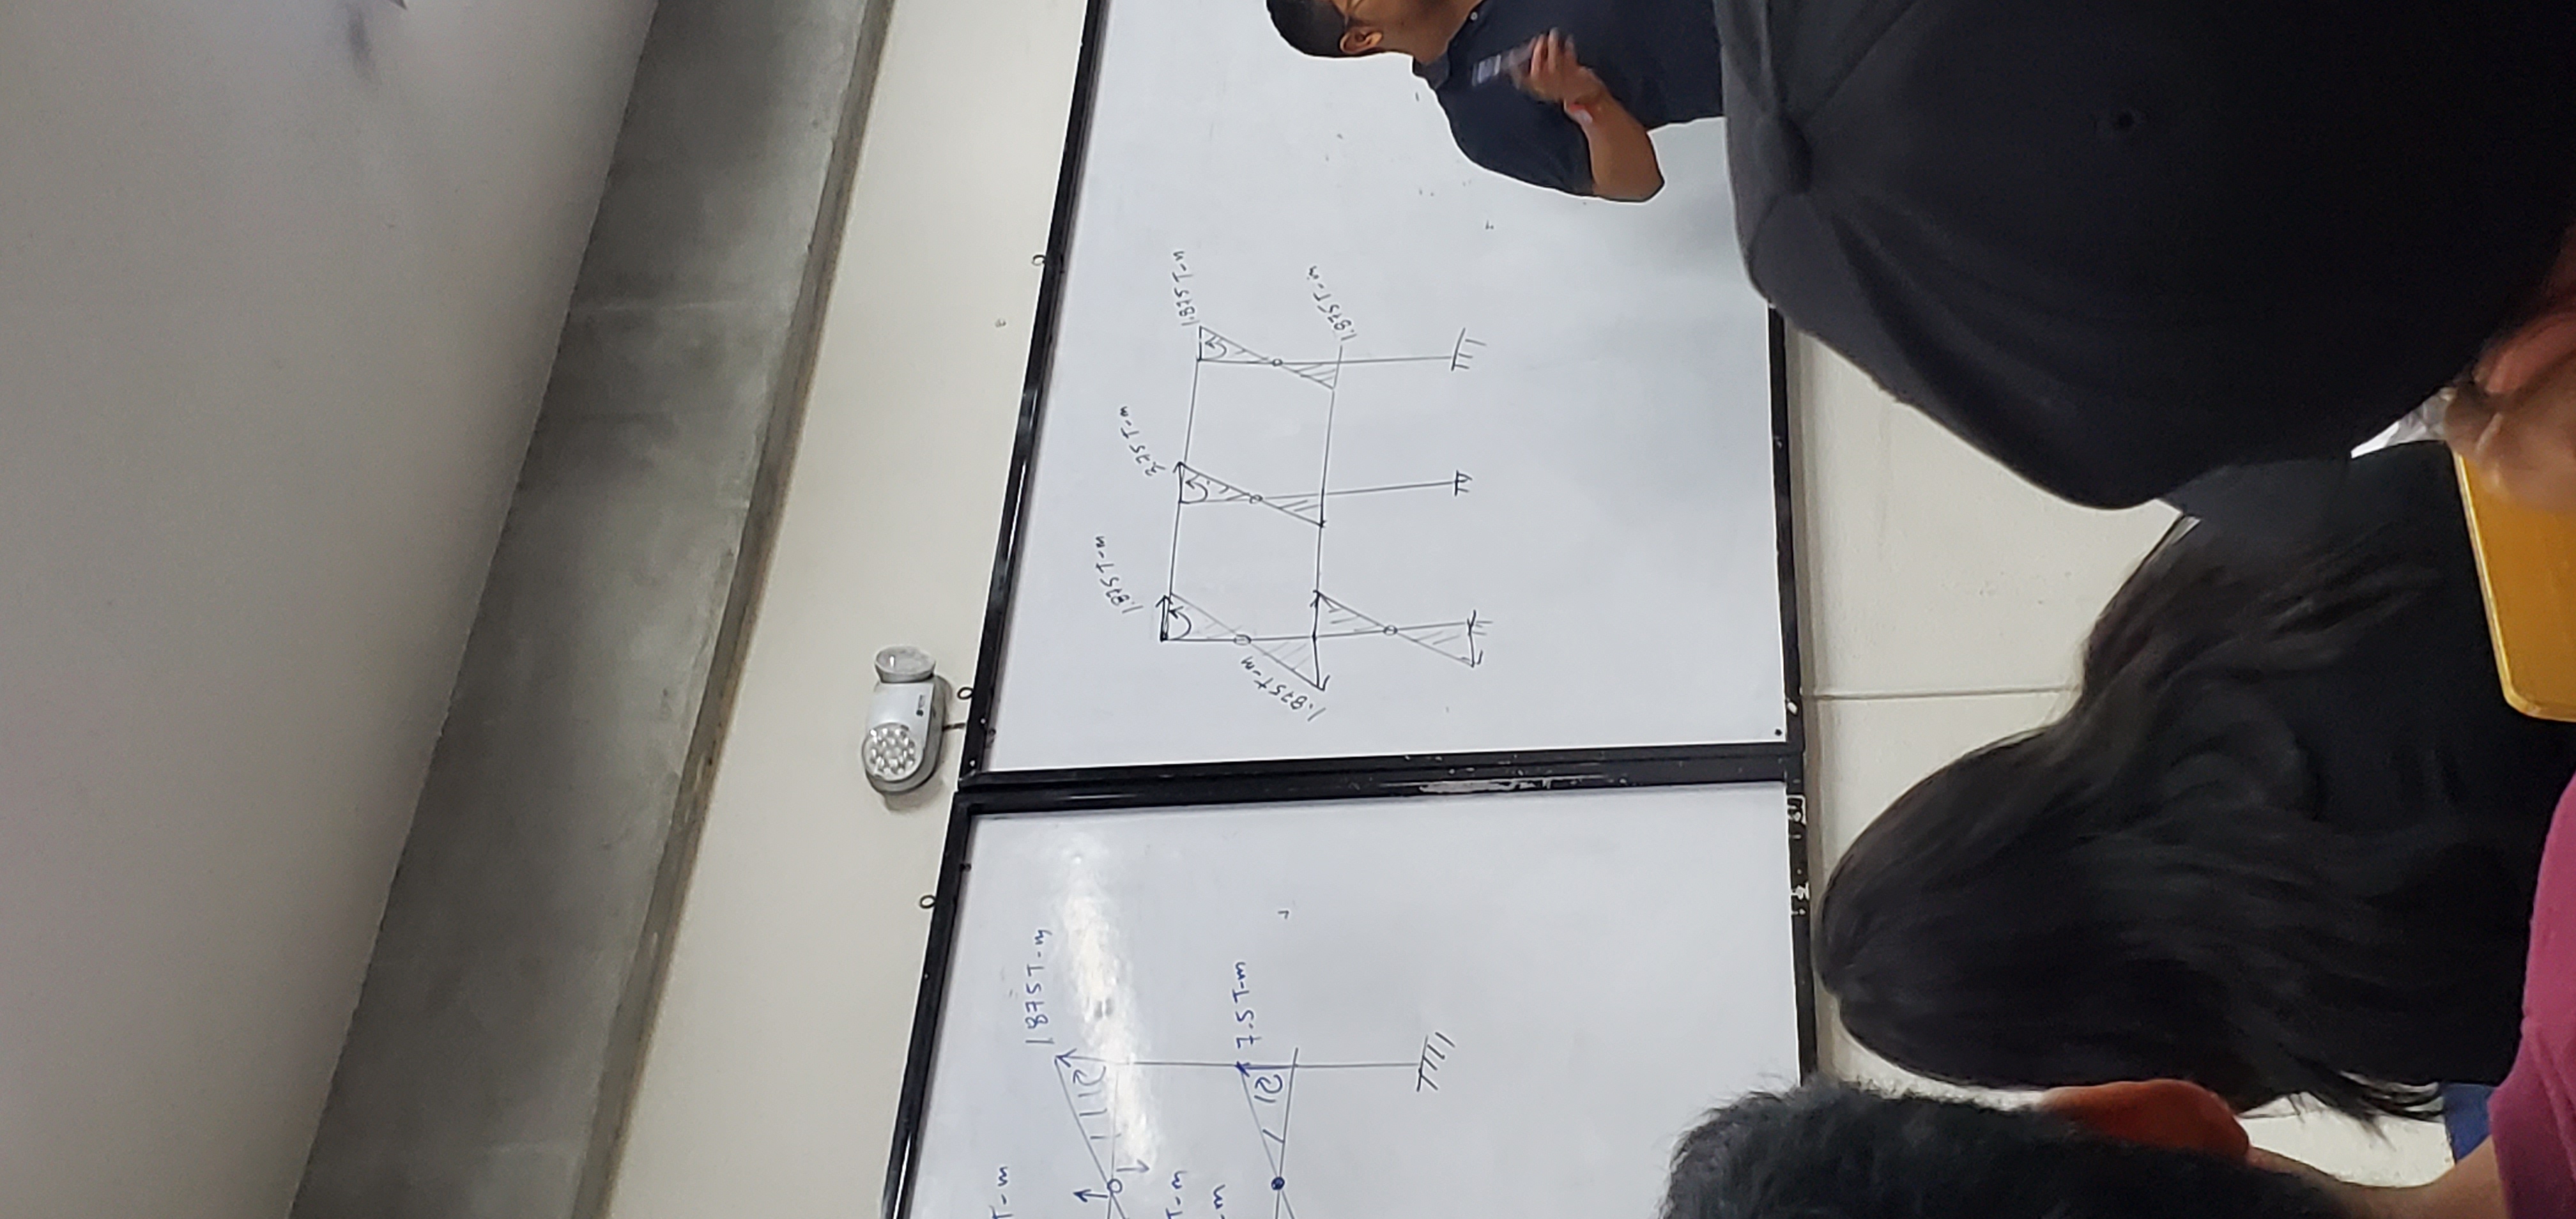 T-m
1.875 T-m
T-m
-m
7.5 T-m
1.875 T-m
3.75 T-m
1.875 T-m
1.875 T-m
1.875 T-m